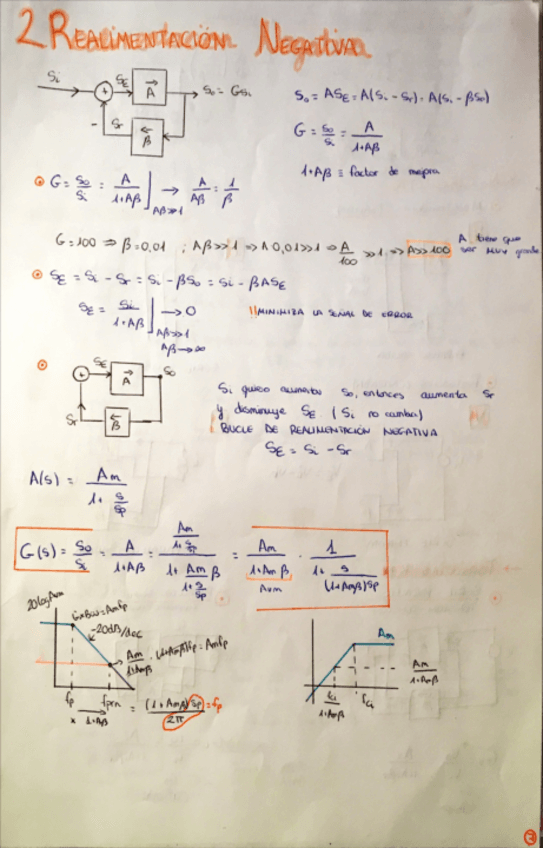 2 REALIMENTACIÓN NEGATIVA
Si + SE A So = GSi
- Sr β
So = ASE = A(Si - Sr) = A(Si - βSo)
G = So/Si = A/(1+Aβ)
1+Aβ ≡ factor de mejora
G = So/Si = A/(1+Aβ) ]Aβ>>1 → A/Aβ = 1/β
G = 100 ⇒ β = 0,01 ; Aβ >> 1 ⇒ A 0,01 >> 1 ⇒ A/100 >> 1 ⇒ A >> 100 A tiene que ser muy grande
SE = Si - Sr = Si - βSo = Si - βASE
SE = Si/(1+Aβ) ]Aβ>>1 → 0 !! MINIMIZA LA SEÑAL DE ERROR
Aβ → ∞
+ SE A So
Sr β
Si quiero aumentar So, entonces aumenta Sr
y disminuye SE (Si no cambia)
BUCLE DE REALIMENTACIÓN NEGATIVA
SE = Si - Sr
A(s) = Am/(1 + s/Sp)
G(s) = So/Si = A/(1+Aβ) = (Am/(1 + s/Sp))/(1 + (Am/(1 + s/Sp))β) = Am/(1+Amβ) · 1/(1 + s/((1+Amβ)Sp))
20logAm
GxBW = Amfp
-20dB/dec
Am/(1+Amβ) · (1+Amβ)fp = Amfp
fp
x 1+Aβ
= (1+Amβ)Sp/2π = fp
Am
Am/(1+Amβ)
fci/(1+Amβ)
fci